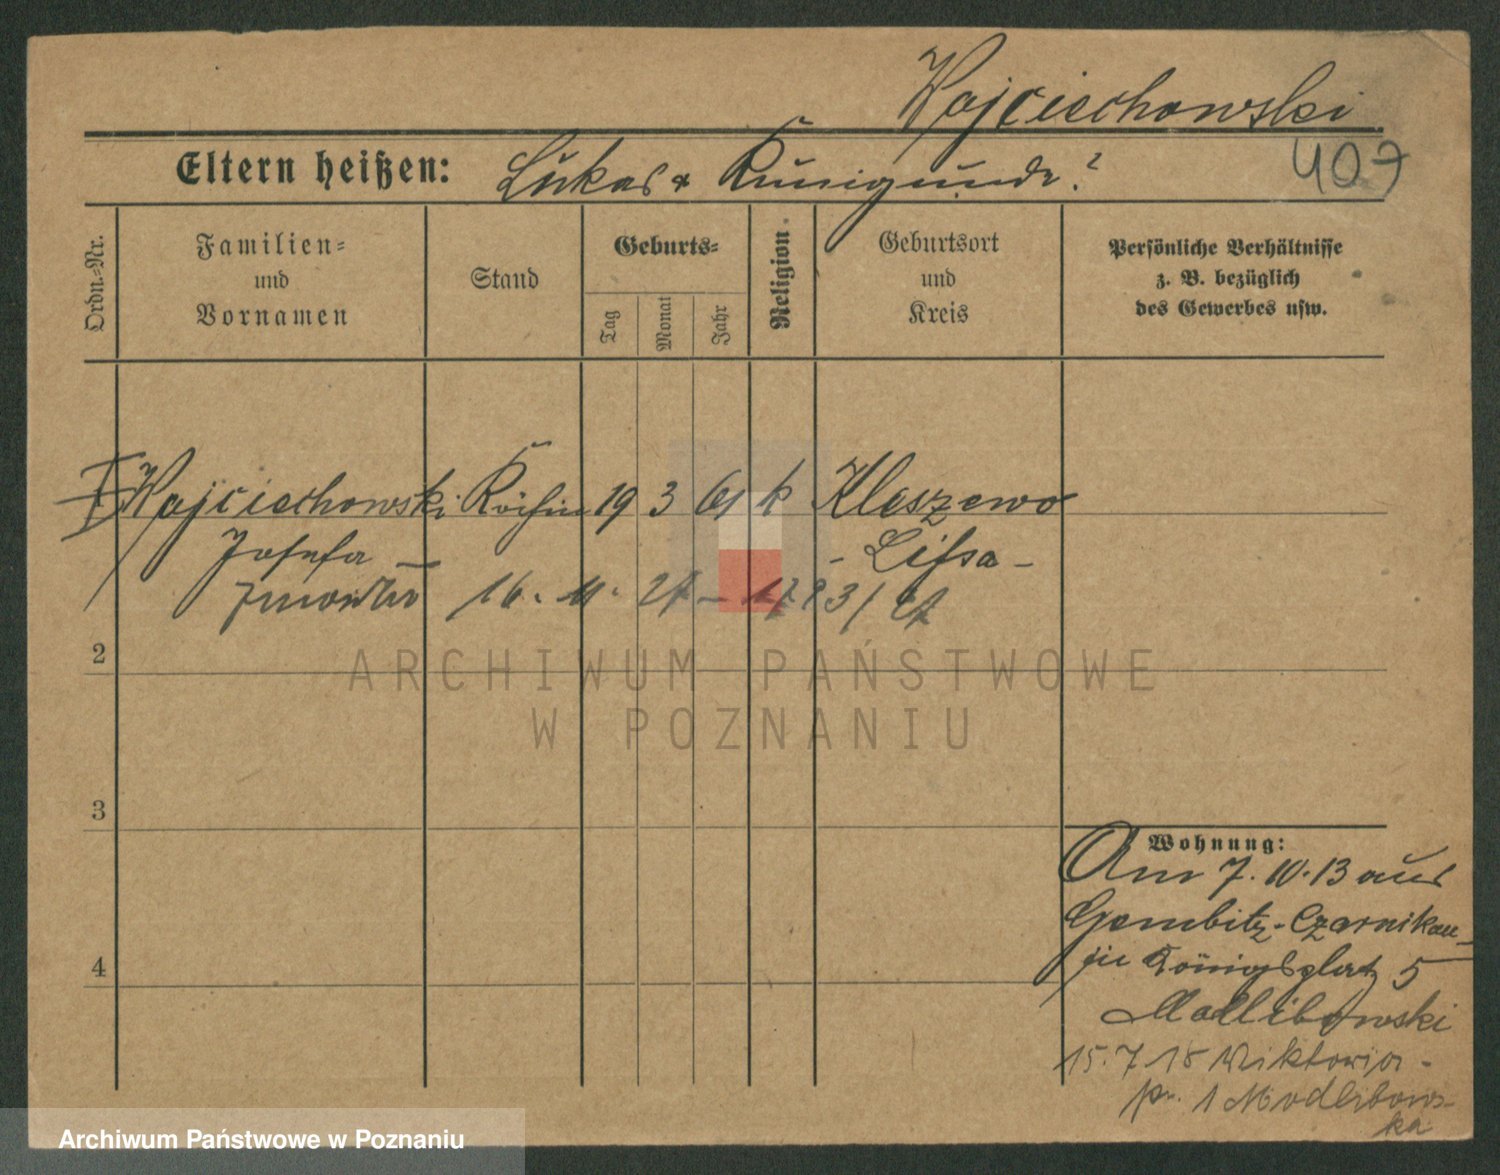 Wojciechowski
407
Eltern heißen: Lukas & Kunigunde ?
Ordn.-Nr.
Familien-
und
Vornamen
Stand
Geburts-
Tag
Monat
Jahr
Religion.
Geburtsort
und
Kreis
Persönliche Verhältnisse
z. B. bezüglich
des Gewerbes usw.
Wojciechowski Köchin 19 3 61 k Kleszewo
Josefa – – Lissa –
16. 11. 27 –
2
ARCHIWUM PAŃSTWOWE
W POZNANIU
3
4
Wohnung:
Am 7.10.13 aus
Gembitz-Czarnikau
Königsplatz 5
Modlibowski
15.7 18 Wiktorja
1 Modlibows-
ka
Archiwum Państwowe w Poznaniu